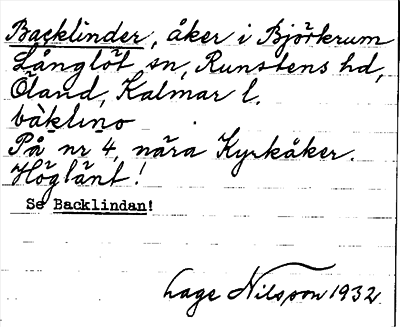 Backlinder, åker i Björkrum
Långlöt sn, Runstens hd,
Öland, Kalmar l.
bàklino
På nr 4, nära Kyrkåker.
Höglänt!
Se Backlindan!
Lage Nilsson 1932